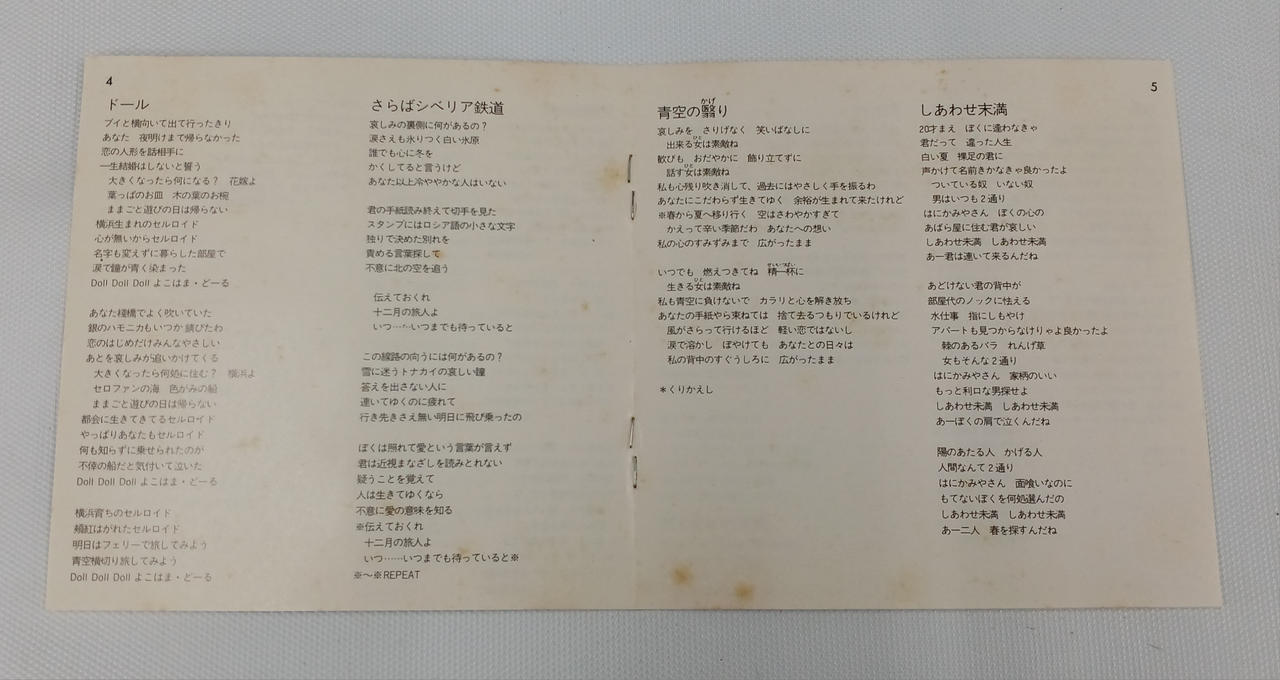 4
ドール
プイと横向いて出て行ったきり
あなた 夜明けまで帰らなかった
恋の人形を話相手に
一生結婚はしないと誓う
大きくなったら何になる? 花嫁よ
葉っぱのお皿 木の葉のお椀
ままごと遊びの日は帰らない
横浜生まれのセルロイド
心が無いからセルロイド
名字も変えずに暮らした部屋で
涙で瞳が青く染まった
Doll Doll Doll よこはま・どーる

あなた桟橋でよく吹いていた
銀のハモニカもいつか錆びたわ
恋のはじめだけみんなやさしい
あとを哀しみが追いかけてくる
大きくなったら何処に住む? 横浜よ
セロファンの海 色がみの船
ままごと遊びの日は帰らない
都会に生きてきてるセルロイド
やっぱりあなたもセルロイド
何も知らずに乗せられたのが
不倖の船だと気付いて泣いた
Doll Doll Doll よこはま・どーる

横浜育ちのセルロイド
頬紅はがれたセルロイド
明日はフェリーで旅してみよう
青空横切り旅してみよう
Doll Doll Doll よこはま・どーる

さらばシベリア鉄道
哀しみの裏側に何があるの?
涙さえも氷りつく白い氷原
誰でも心に冬を
かくしてると言うけど
あなた以上冷ややかな人はいない

君の手紙読み終えて切手を見た
スタンプにはロシア語の小さな文字
独りで決めた別れを
責める言葉探して
不意に北の空を追う

伝えておくれ
十二月の旅人よ
いつ……いつまでも待っていると

この線路の向うには何があるの?
雪に迷うトナカイの哀しい瞳
答えを出さない人に
連いてゆくのに疲れて
行き先さえ無い明日に飛び乗ったの

ぼくは照れて愛という言葉が言えず
君は近視まなざしを読みとれない
疑うことを覚えて
人は生きてゆくなら
不意に愛の意味を知る
※伝えておくれ
十二月の旅人よ
いつ……いつまでも待っていると※
※〜※REPEAT

5
青空の翳り
かげ
哀しみを さりげなく 笑いばなしに
出来る女は素敵ね
ひと
歓びも おだやかに 飾り立てずに
話す女は素敵ね
ひと
私も心残り吹き消して、過去にはやさしく手を振るわ
あなたにこだわらず生きてゆく 余裕が生まれて来たけれど
※春から夏へ移り行く 空はさわやかすぎて
かえって辛い季節だわ あなたへの想い
私の心のすみずみまで 広がったまま

いつでも 燃えつきてね 精一杯に
せいいっぱい
生きる女は素敵ね
ひと
私も青空に負けないで カラリと心を解き放ち
あなたの手紙やら束ねては 捨て去るつもりでいるけれど
風がさらって行けるほど 軽い恋ではないし
涙で溶かし ぼやけても あなたとの日々は
私の背中のすぐうしろに 広がったまま

＊くりかえし

しあわせ未満
20才まえ ぼくに逢わなきゃ
君だって 違った人生
白い夏 裸足の君に
声かけて名前きかなきゃ良かったよ
ついている奴 いない奴
男はいつも2通り
はにかみやさん ぼくの心の
あばら屋に住む君が哀しい
しあわせ未満 しあわせ未満
あー君は連いて来るんだね

あどけない君の背中が
部屋代のノックに怯える
水仕事 指にしもやけ
アパートも見つからなけりゃよ良かったよ
棘のあるバラ れんげ草
女もそんな2通り
はにかみやさん 家柄のいい
もっと利口な男探せよ
しあわせ未満 しあわせ未満
あーぼくの肩で泣くんだね

陽のあたる人 かげる人
人間なんて2通り
はにかみやさん 面喰いなのに
もてないぼくを何処選んだの
しあわせ未満 しあわせ未満
あー二人 春を探すんだね